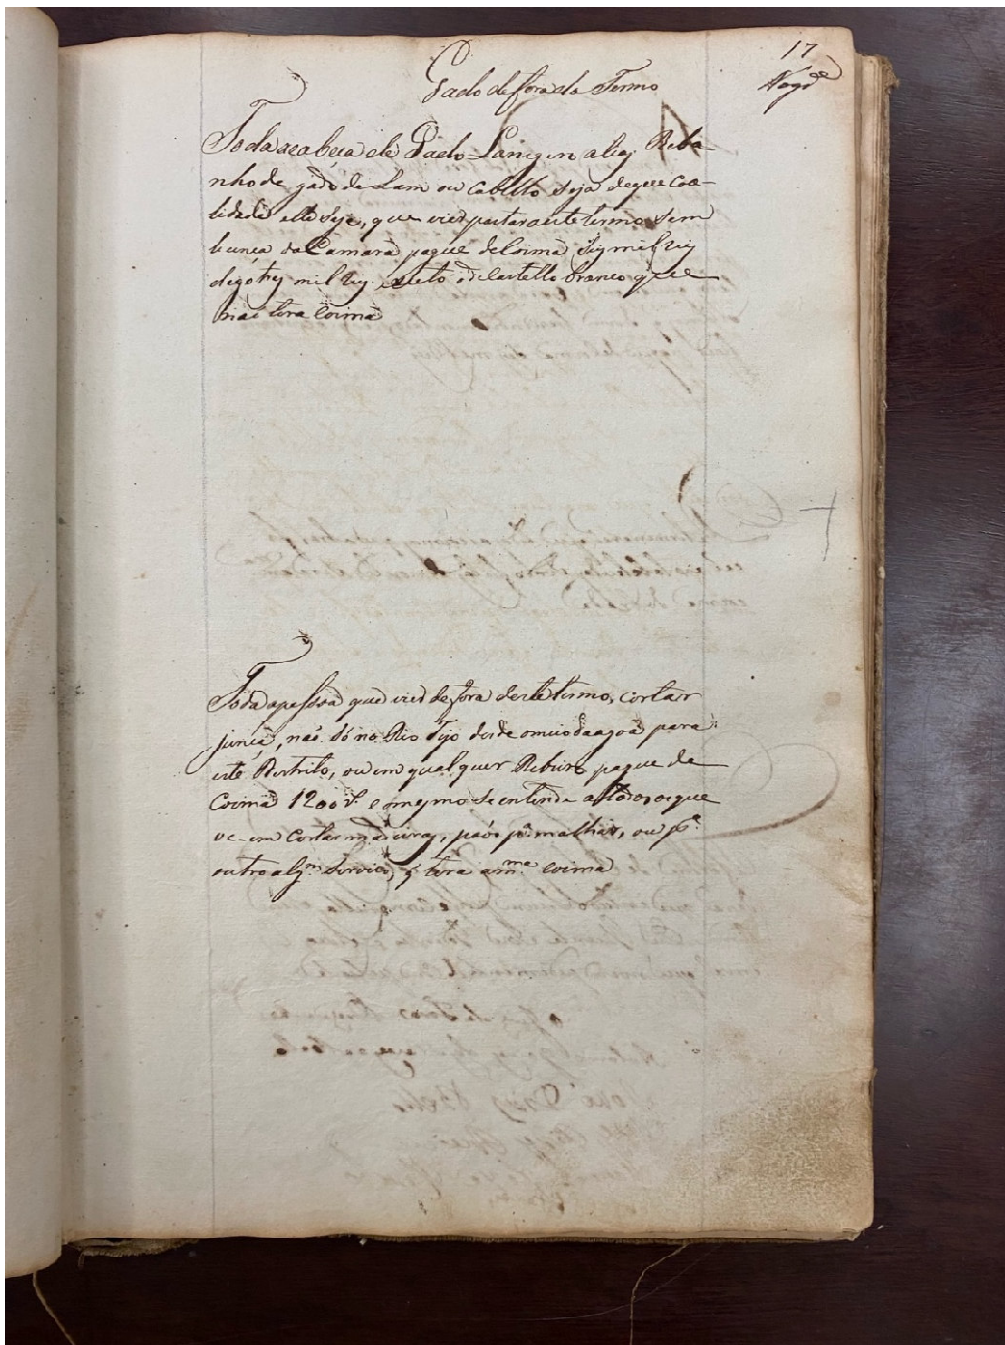 17
Gado de fora do Termo
Toda acabeça de Gado Lanigero aliás Reba-
nho de gado de Lam ou Cabello seja de que cali-
lidade elle seja, que vier pastar a este termo sem
licença da Camara pague de Coima seis mil reis
digo tres mil reis, exceto o de Castello Branco que
naõ terá Coima
Toda apessoa que vier de fora deste termo, cortar
junça, naõ só no Rio Tejo desde omeio da agoa para
este Destrito, ou em qual quer Ribeiro pague de
Coima 1200 r.s e omesmo se entende atodos os que
vem cortar madeiras, páos p.a malhar, ou p.a
outro alg.m serviço, q terá am.ma coima